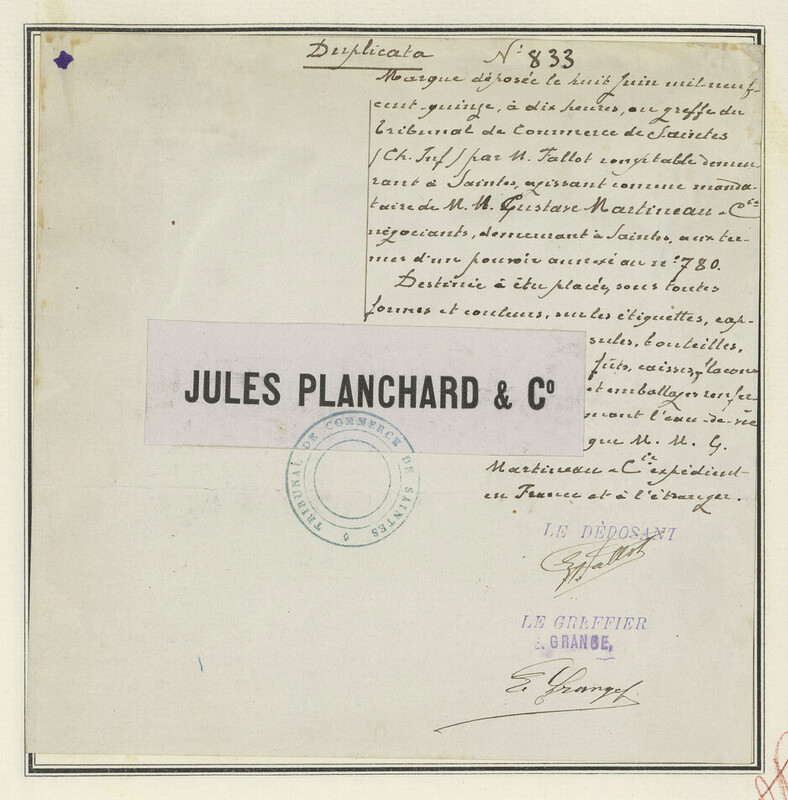 Duplicata N° 833
Marque déposée le huit Juin mil neuf-
cent-quinze, à dix heures, au greffe du
Tribunal de Commerce de Saintes
(Ch. Inf) par M. Fallot comptable demeu-
rant à Saintes, agissant comme manda-
taire de M. M. Gustave Martineau & Cie
négociants, demeurant à Saintes, aux ter-
mes d'un pouvoir annexé au n° 780.
Destinée à être placée, sous toutes
formes et couleurs, sur les étiquettes, cap-
sules, bouteilles,
fûts, caisses, flacons
et emballages renfer-
mant l'eau-de-vie
que M. M. G.
Martineau & Cie expédient
en France et à l'étranger.
JULES PLANCHARD & Co
TRIBUNAL DE COMMERCE DE SAINTES
LE DÉPOSANT
E. Fallot
LE GREFFIER
E. GRANGE,
E. Grange